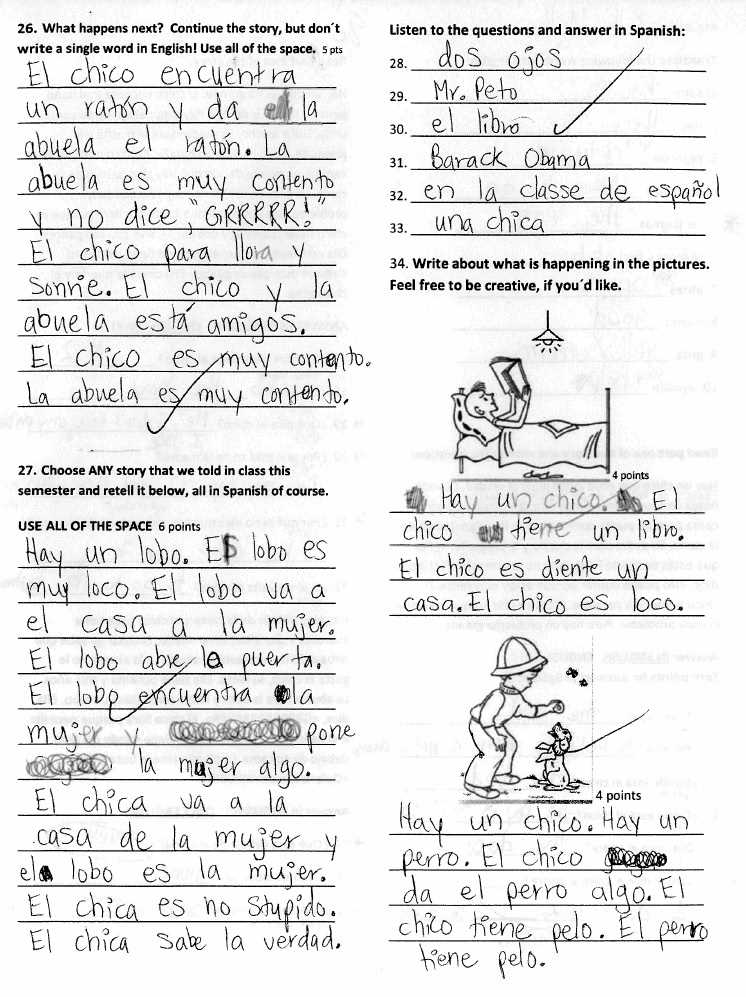 26. What happens next?  Continue the story, but don´t
write a single word in English! Use all of the space. 5 pts
El chico encuentra
un ratón y da la
abuela el ratón. La
abuela es muy contento
y no dice, "GRRRRR!"
El chico para llora y
sonríe. El chico y la
abuela está amigos.
El chico es muy contento.
La abuela es muy contento.
27. Choose ANY story that we told in class this
semester and retell it below, all in Spanish of course.
USE ALL OF THE SPACE  6 points
Hay un lobo. El lobo es
muy loco. El lobo va a
el casa a la mujer.
El lobo abre la puerta.
El lobo encuentra la
mujer y pone
la mujer algo.
El chica va a la
casa de la mujer y
el lobo es la mujer.
El chica es no stupido.
El chica sabe la verdad.
Listen to the questions and answer in Spanish:
28. dos ojos
29. Mr. Peto
30. el libro
31. Barack Obama
32. en la classe de español
33. una chica
34. Write about what is happening in the pictures.
Feel free to be creative, if you´d like.
4 points
Hay un chico. El
chico tiene un libro.
El chico es diente un
casa. El chico es loco.
4 points
Hay un chico. Hay un
perro. El chico
da el perro algo. El
chico tiene pelo. El perro
tiene pelo.